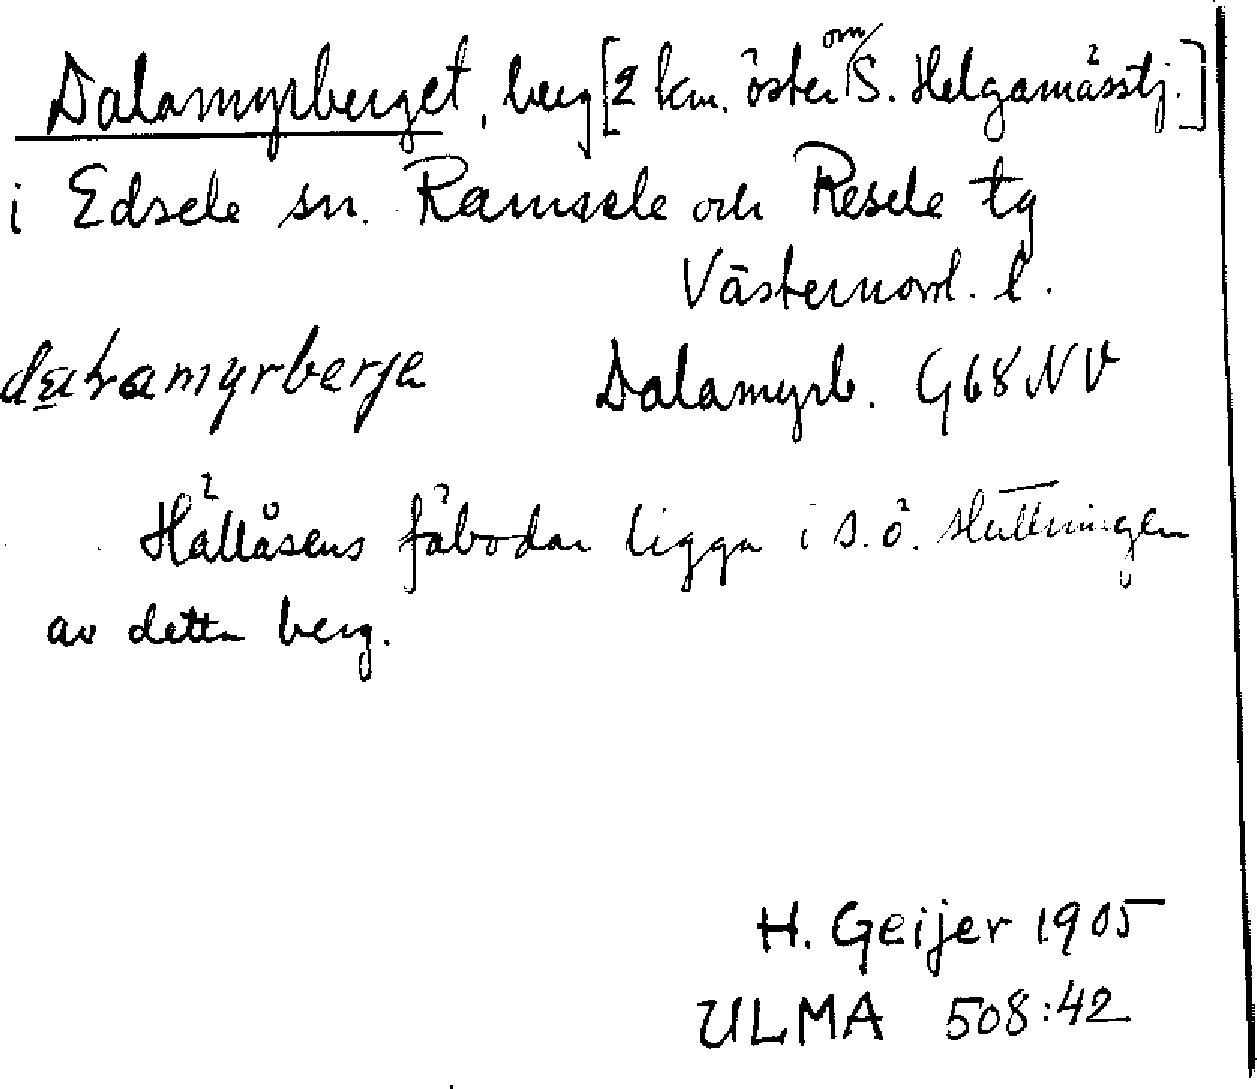 Dalamyrberget, berg [2 km. öster om S. Helgamässtj.]
i Edsele sn. Ramsele och Resele tg
Västernorrl. l.
Dalamyrb. G68NV
Hällåsens fäbodar ligga i s.ö. sluttningen
av detta berg.
H. Geijer 1905
ULMA 508:42